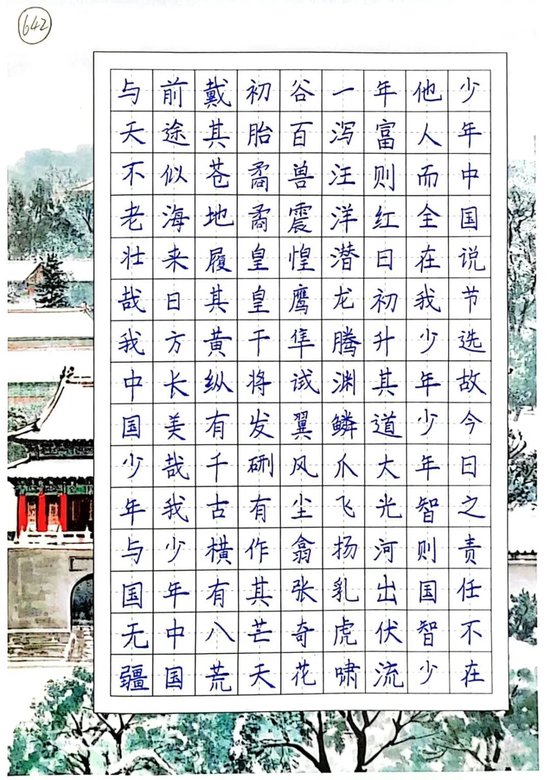 642
少年中国说节选故今日之责任不在
他人而全在我少年少年智则国智少
年富则红日初升其道大光河出伏流
一泻汪洋潜龙腾渊鳞爪飞扬乳虎啸
谷百兽震惶鹰隼试翼风尘翕张奇花
初胎矞矞皇皇干将发硎有作其芒天
戴其苍地履其黄纵有千古横有八荒
前途似海来日方长美哉我少年中国
与天不老壮哉我中国少年与国无疆